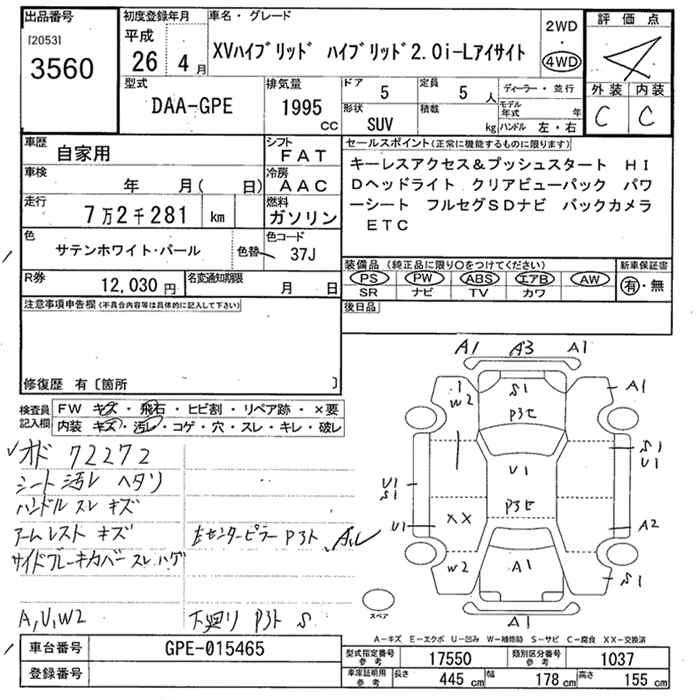 出品番号
[2053]
3560
初度登録年月
平成
26 年 4 月
車名・グレード
XVハイブリッド ハイブリッド2.0i-Lアイサイト
2WD
・
4WD
評価点
4
外装 内装
C C
型式
DAA-GPE
排気量
1995 cc
ドア
5
定員
5 人
形状
SUV
積載
kg
ディーラー・並行
モデル年式 年
ハンドル 左・右
車歴
自家用
シフト
FAT
車検
年 月( 日)
冷房
AAC
走行
7万2千281 km
燃料
ガソリン
色
サテンホワイト・パール
色替
色コード
37J
R券
12,030 円
名変通知期限
月 日
セールスポイント(正常に機能するものに限ります)
キーレスアクセス&プッシュスタート HI
Dヘッドライト クリアビューパック パワ
ーシート フルセグSDナビ バックカメラ
ETC
装備品 (純正品に限り○をつけてください)
PS PW ABS エアB AW
SR ナビ TV カワ
新車保証書
有・無
後日品
注意事項申告欄(不具合内容等は具体的に記入して下さい)
修復歴 有〔箇所 〕
検査員記入欄
FW キズ・飛石・ヒビ割・リペア跡・×要
内装 キズ・汚レ・コゲ・穴・スレ・キレ・破レ
オド 72272
シート汚レ ヘタリ
ハンドル スレ キズ
アームレスト キズ
サイドブレーキカバー スレ ハゲ
左センターピラー P3ト A,U
A,U,W2
下廻り P3ト S
A1 A3 A1
W2
S1
P3セ
A1
U1
S1
U1
U1
S1
P3セ
U1
XX
A2
W2
A1
S1
A1
スペア
A-キズ E-エクボ U-凹み W-補修跡 S-サビ C-腐食 XX-交換済
車台番号
GPE-015465
登録番号
型式指定番号 参考
17550
類別区分番号 参考
1037
車庫証明用 参考
長さ 445 cm
幅 178 cm
高さ 155 cm